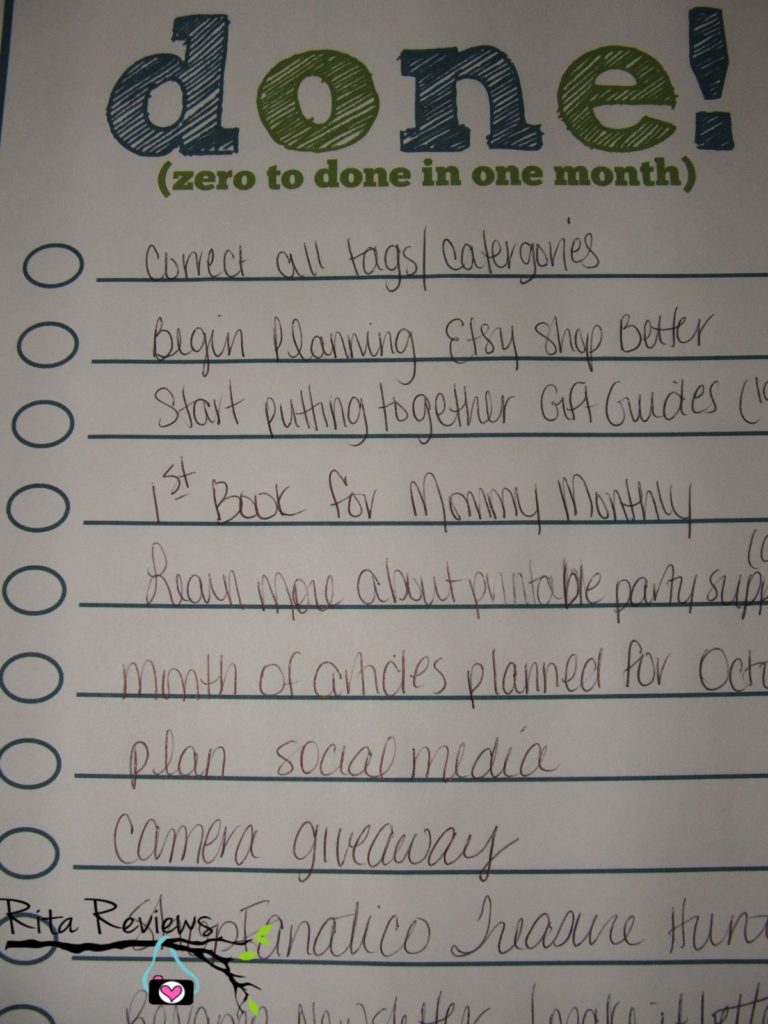 done!
(zero to done in one month)
Correct all tags/catergories
Begin Planning Etsy Shop Better
Start putting together Gift Guides (10
1st Book for Mommy Monthly
Learn more about printable party supp
month of articles planned for Octo
plan social media
Camera giveaway
Rita Reviews
ShopFanatico Treasure Hunt
Newsletter make it